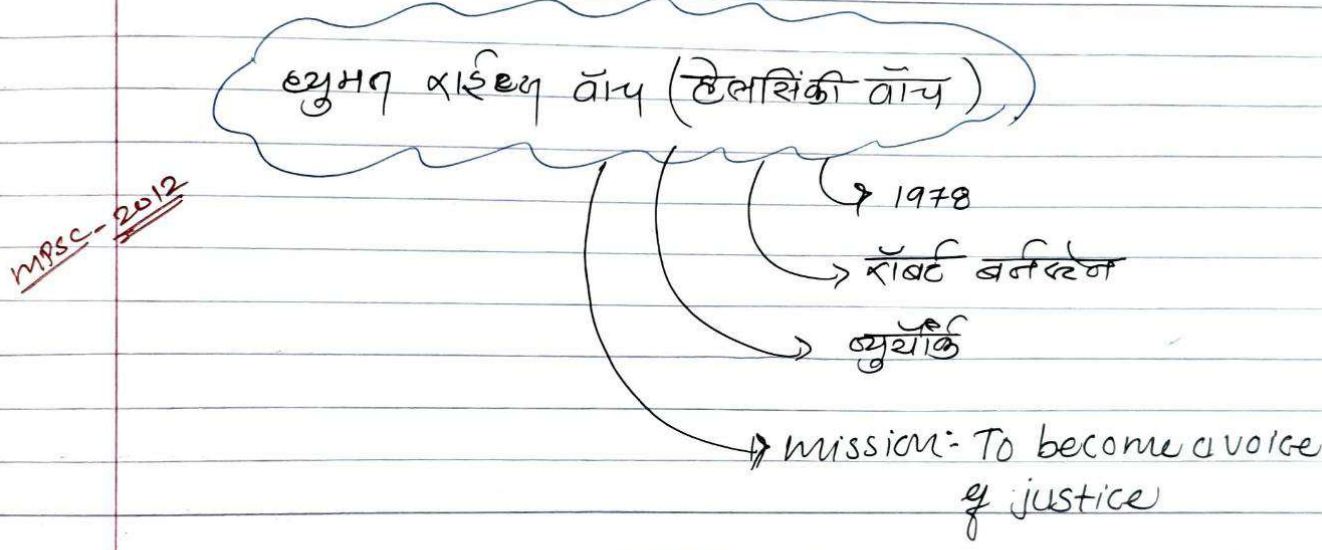 ह्युमन राईट्स वॉच (हेलसिंकी वॉच)
MPSC-2012
1978
रॉबर्ट बर्नस्टेन
न्युयॉर्क
mission:- To become a voice
of justice